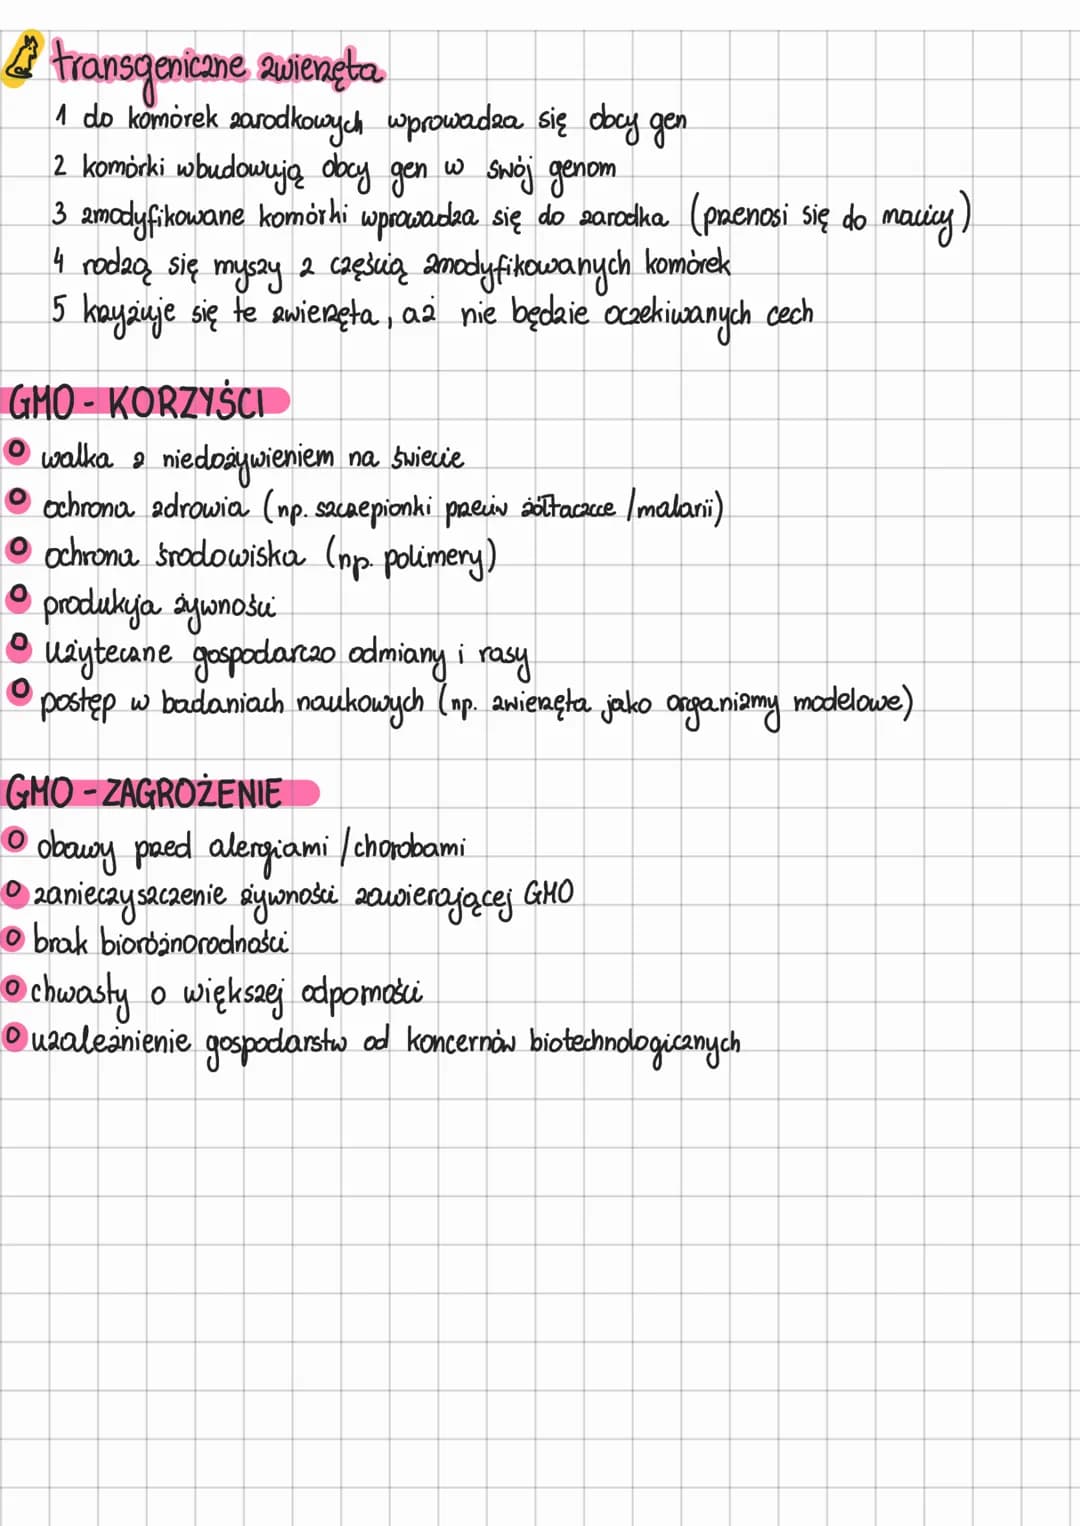 transgeniczne zwierzęta
1 do komórek zarodkowych wprowadza się obcy gen
2 komórki wbudowują obcy gen w swój genom
3 zmodyfikowane komórki wprowadza się do zarodka (przenosi się do macicy)
4 rodzą się myszy z częścią zmodyfikowanych komórek
5 krzyżuje się te zwierzęta, aż nie będzie oczekiwanych cech
GMO - KORZYŚCI
walka z niedożywieniem na świecie
ochrona zdrowia (np. szczepionki przeciw żółtaczce / malarii)
ochrona środowiska (np. polimery)
produkcja żywności
użyteczne gospodarczo odmiany i rasy
postęp w badaniach naukowych (np. zwierzęta jako organizmy modelowe)
GMO - ZAGROŻENIE
obawy przed alergiami / chorobami
zanieczyszczenie żywności zawierającej GMO
brak bioróżnorodności
chwasty o większej odporności
uzależnienie gospodarstw od koncernów biotechnologicznych